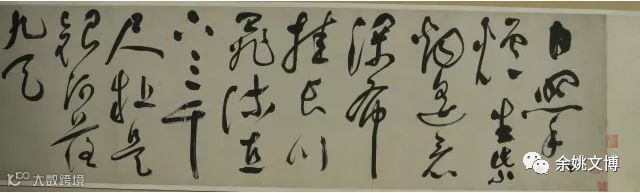 日照香
爐生紫
烟遥看
瀑布
挂長川
飛流直
下三千
尺疑是
銀河落
九天
大数跨境
余姚文博